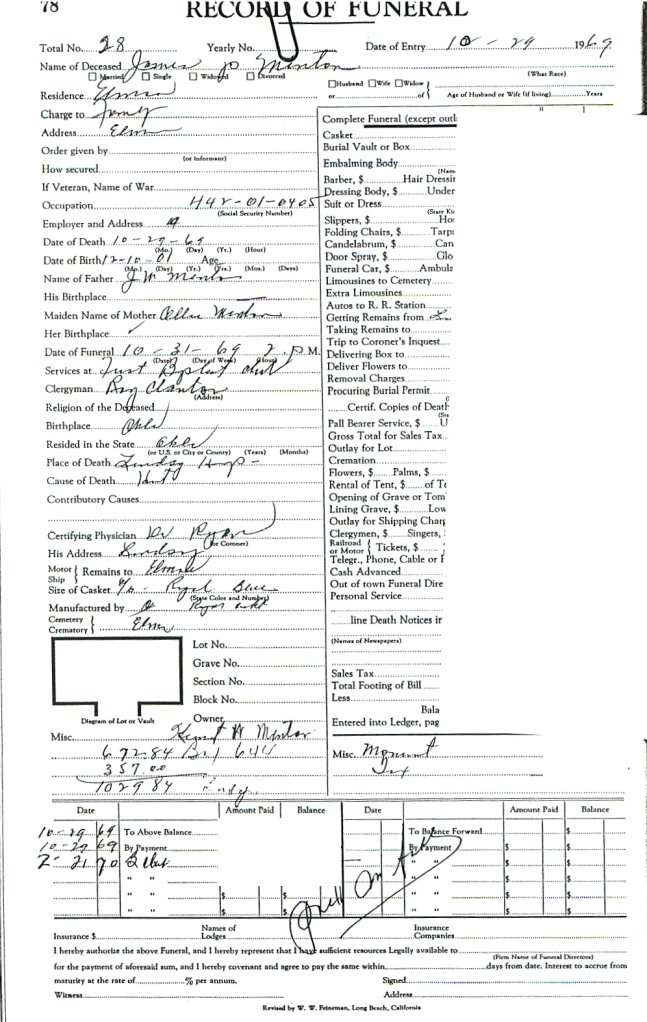 78
RECORD OF FUNERAL
Total No. 28 Yearly No. Date of Entry 10-29 1969
Name of Deceased James P Minton
Married Single Widowed Divorced (What Race)
Residence Elmore
Husband Wife Widow
or of Age of Husband or Wife (if living) Years
Charge to family
Complete Funeral (except outl
Address Elmore
Casket
Order given by
Burial Vault or Box
(or informant)
Embalming Body
How secured
(Nam
Barber, $ Hair Dressi
If Veteran, Name of War
Dressing Body, $ Under
Occupation 442-01-0405
Suit or Dress
(Social Security Number)
(State Ki
Slippers, $ Ho
Employer and Address
Folding Chairs, $ Tarp
Date of Death 10-29-69
Candelabrum, $ Can
(Mo.) (Day) (Yr.) (Hour)
Door Spray, $ Glo
Date of Birth 12-10-01 Age
Funeral Car, $ Ambula
(Mo.) (Day) (Yr.) (Yrs.) (Mos.) (Days)
Limousines to Cemetery
Name of Father J W Minton
Extra Limousines
His Birthplace
Autos to R. R. Station
Maiden Name of Mother Ollie
Getting Remains from
Her Birthplace
Taking Remains to
Trip to Coroner's Inquest
Date of Funeral 10-31-69 2 P.M.
Delivering Box to
(Date) (Day of Week) (Hour)
Services at First Baptist Church
Deliver Flowers to
Clergyman Ray Clanton
Removal Charges
(Address)
Procuring Burial Permit
Religion of the Deceased
Certif. Copies of Death
Birthplace Okla
Pall Bearer Service, $ U
Resided in the State Okla
Gross Total for Sales Tax
(or U.S. or City or County) (Years) (Months)
Outlay for Lot
Place of Death Lindsay Hosp-
Cremation
Flowers, $ Palms, $
Cause of Death
Rental of Tent, $ of Te
Contributory Causes
Opening of Grave or Tom
Lining Grave, $ Low
Outlay for Shipping Char
Certifying Physician Dr Ryan
Clergymen, $ Singers,
(or Coroner)
Railroad or Motor Tickets, $
His Address Lindsay
Telegr., Phone, Cable or F
Motor Ship Remains to Elmore
Cash Advanced
Size of Casket 6/6 - Royal Blue
Out of town Funeral Dire
(State Color and Number)
Personal Service
Manufactured by
Cemetery Crematory Elmore
line Death Notices ir
(Names of Newspapers)
Lot No.
Grave No.
Section No.
Sales Tax
Block No.
Total Footing of Bill
Less
Diagram of Lot or Vault
Owner
Bala
Entered into Ledger, pag
Misc. Minton
672.84 Box 644
Misc. Monument
357.00
1029.84
Date Amount Paid Balance Date Amount Paid Balance
10-29 69 To Above Balance To Balance Forward $
10-29 69 By Payment By Payment $
2-21 70
" " " " $
" " " " $
" " $ $ " " $
" " $ $ " " $
Insurance $ Names of Lodges Insurance Companies
I hereby authorize the above Funeral, and I hereby represent that I have sufficient resources Legally available to
(Firm Name of Funeral Directors)
for the payment of aforesaid sum, and I hereby covenant and agree to pay the same within days from date. Interest to accrue from
maturity at the rate of % per annum. Signed
Witness Address
Revised by W. W. Feineman, Long Beach, California